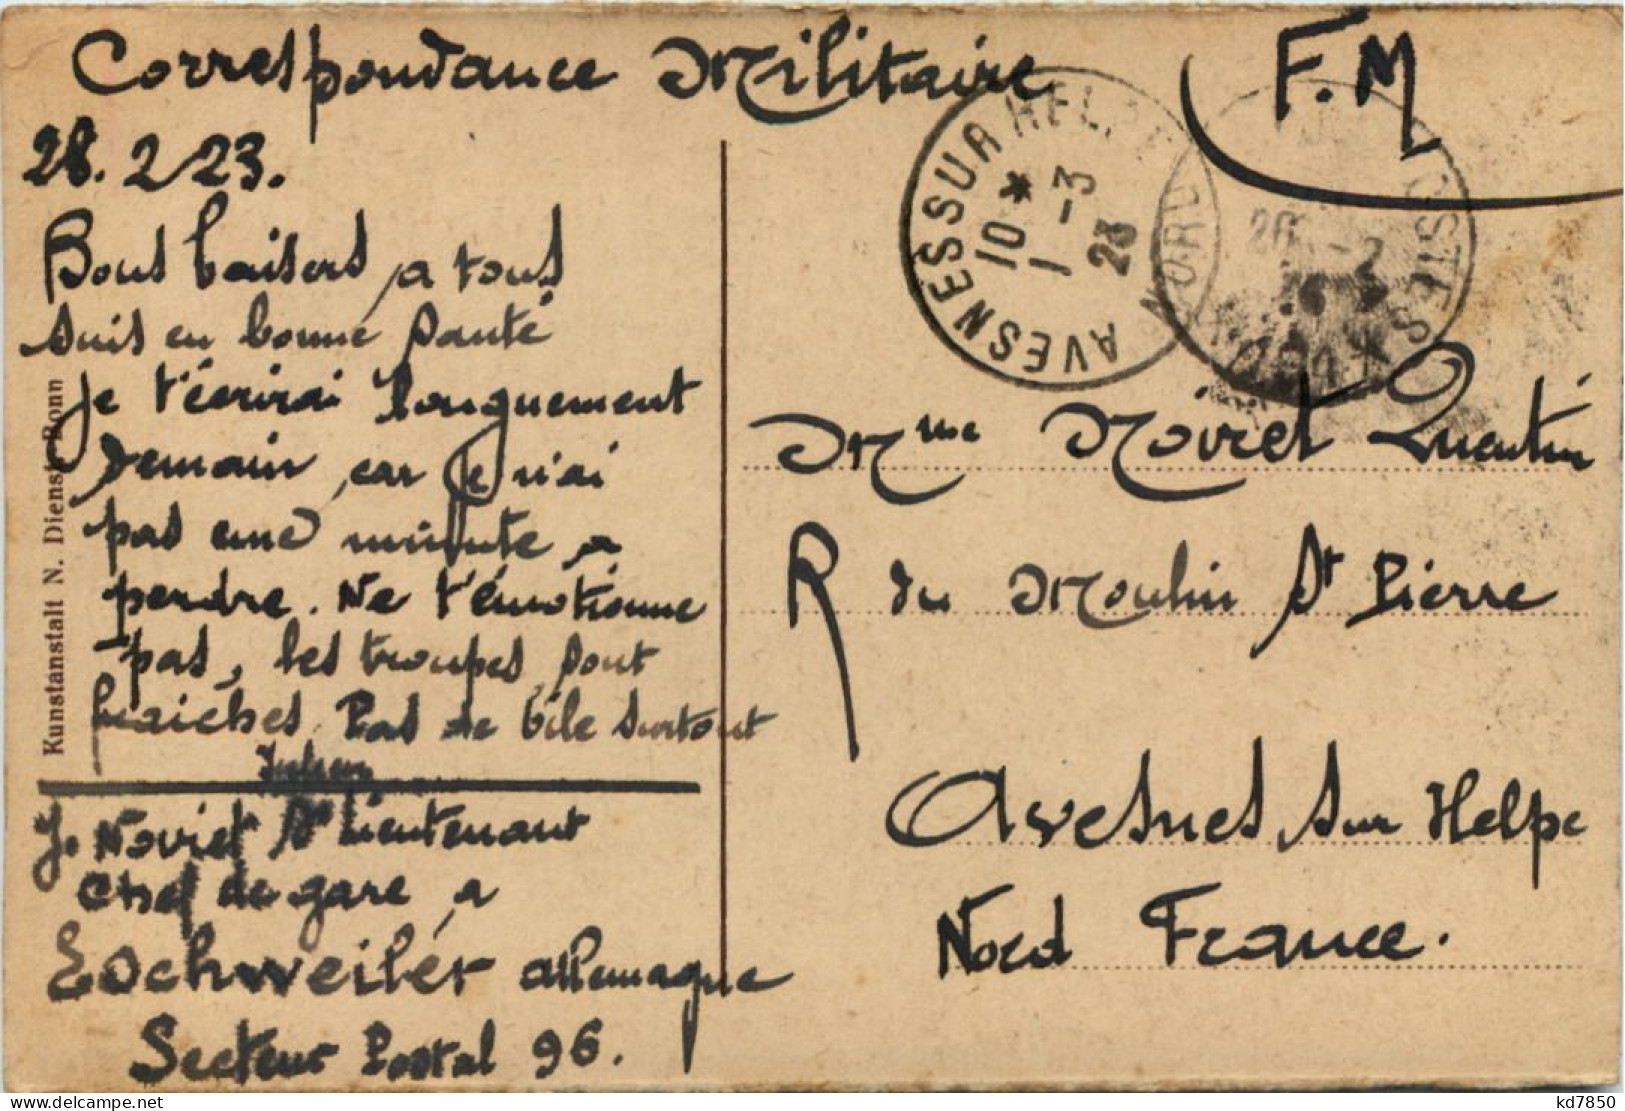 Correspondance Militaire
F.M
28.2.23.
Bons baisers, a tous
suis en bonne santé
je t'écrirai longuement
demain, car je n'ai
pas une minute a
perdre. Ne t'émotionne
pas, les troupes sont
fraiches. Pas de bile surtout
J. Noviet St Lieutenant
Chef de gare a
Eschweiler allemagne
Secteur Postal 96.
Kunstanstalt N. Dienst Bonn
AVESNES SUR HELPE
NORD
10 * 1 -3 23
POSTES
Mme Noiret Quentin
R du Moulin St Pierre
Avesnes sur Helpe
Nord France.
kd7850